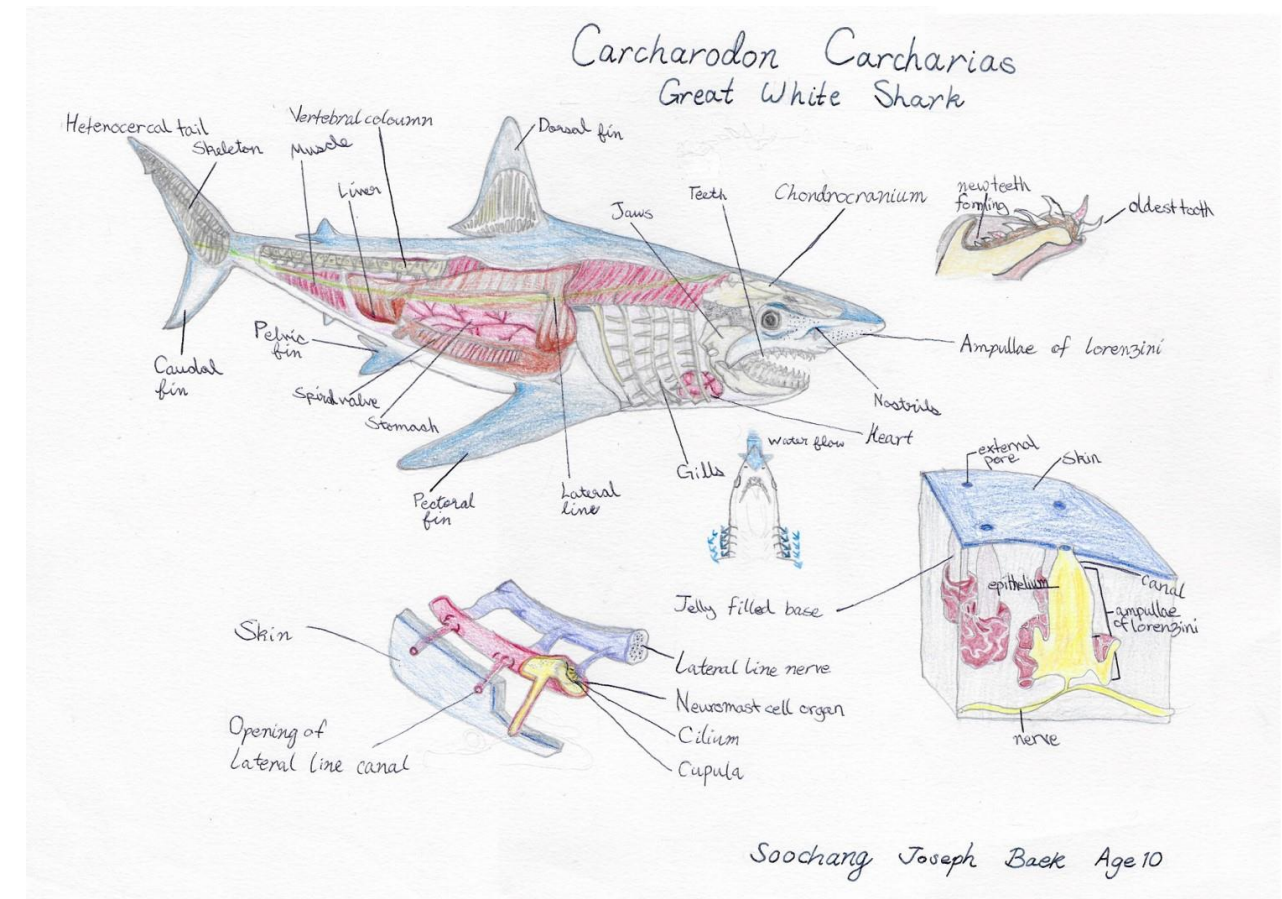 Carcharodon Carcharias
Great White Shark
Hetenocercal tail
Skeleton
Muscle
Vertebral coloumn
Liver
Dorsal fin
Jaws
Teeth
Chondrocranium
new teeth
forming
oldest tooth
Caudal
fin
Pelvic
fin
Spiral valve
Stomach
Pectoral
fin
Lateral
line
Gills
Heart
Nostrils
Ampullae of lorenzini
Water flow
external
pore
Skin
epithelium
canal
ampullae
of lorenzini
Jelly filled base
nerve
Skin
Opening of
Lateral line canal
Lateral line nerve
Neuromast cell organ
Cilium
Cupula
Soochang Joseph Baek Age 10